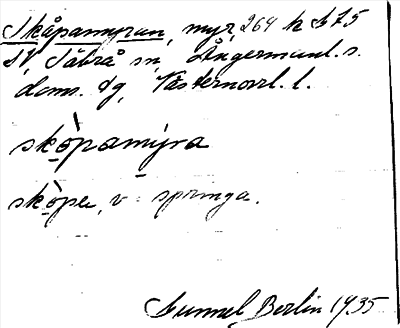 Skåpamyran, myr, 264 h b 75
SV, Säbrå sn, Ångermanl. s.
doms. dg, Västernorrl. l.
skòpamýra
skòpa, v = springa.
Gunnel Berlin 1935